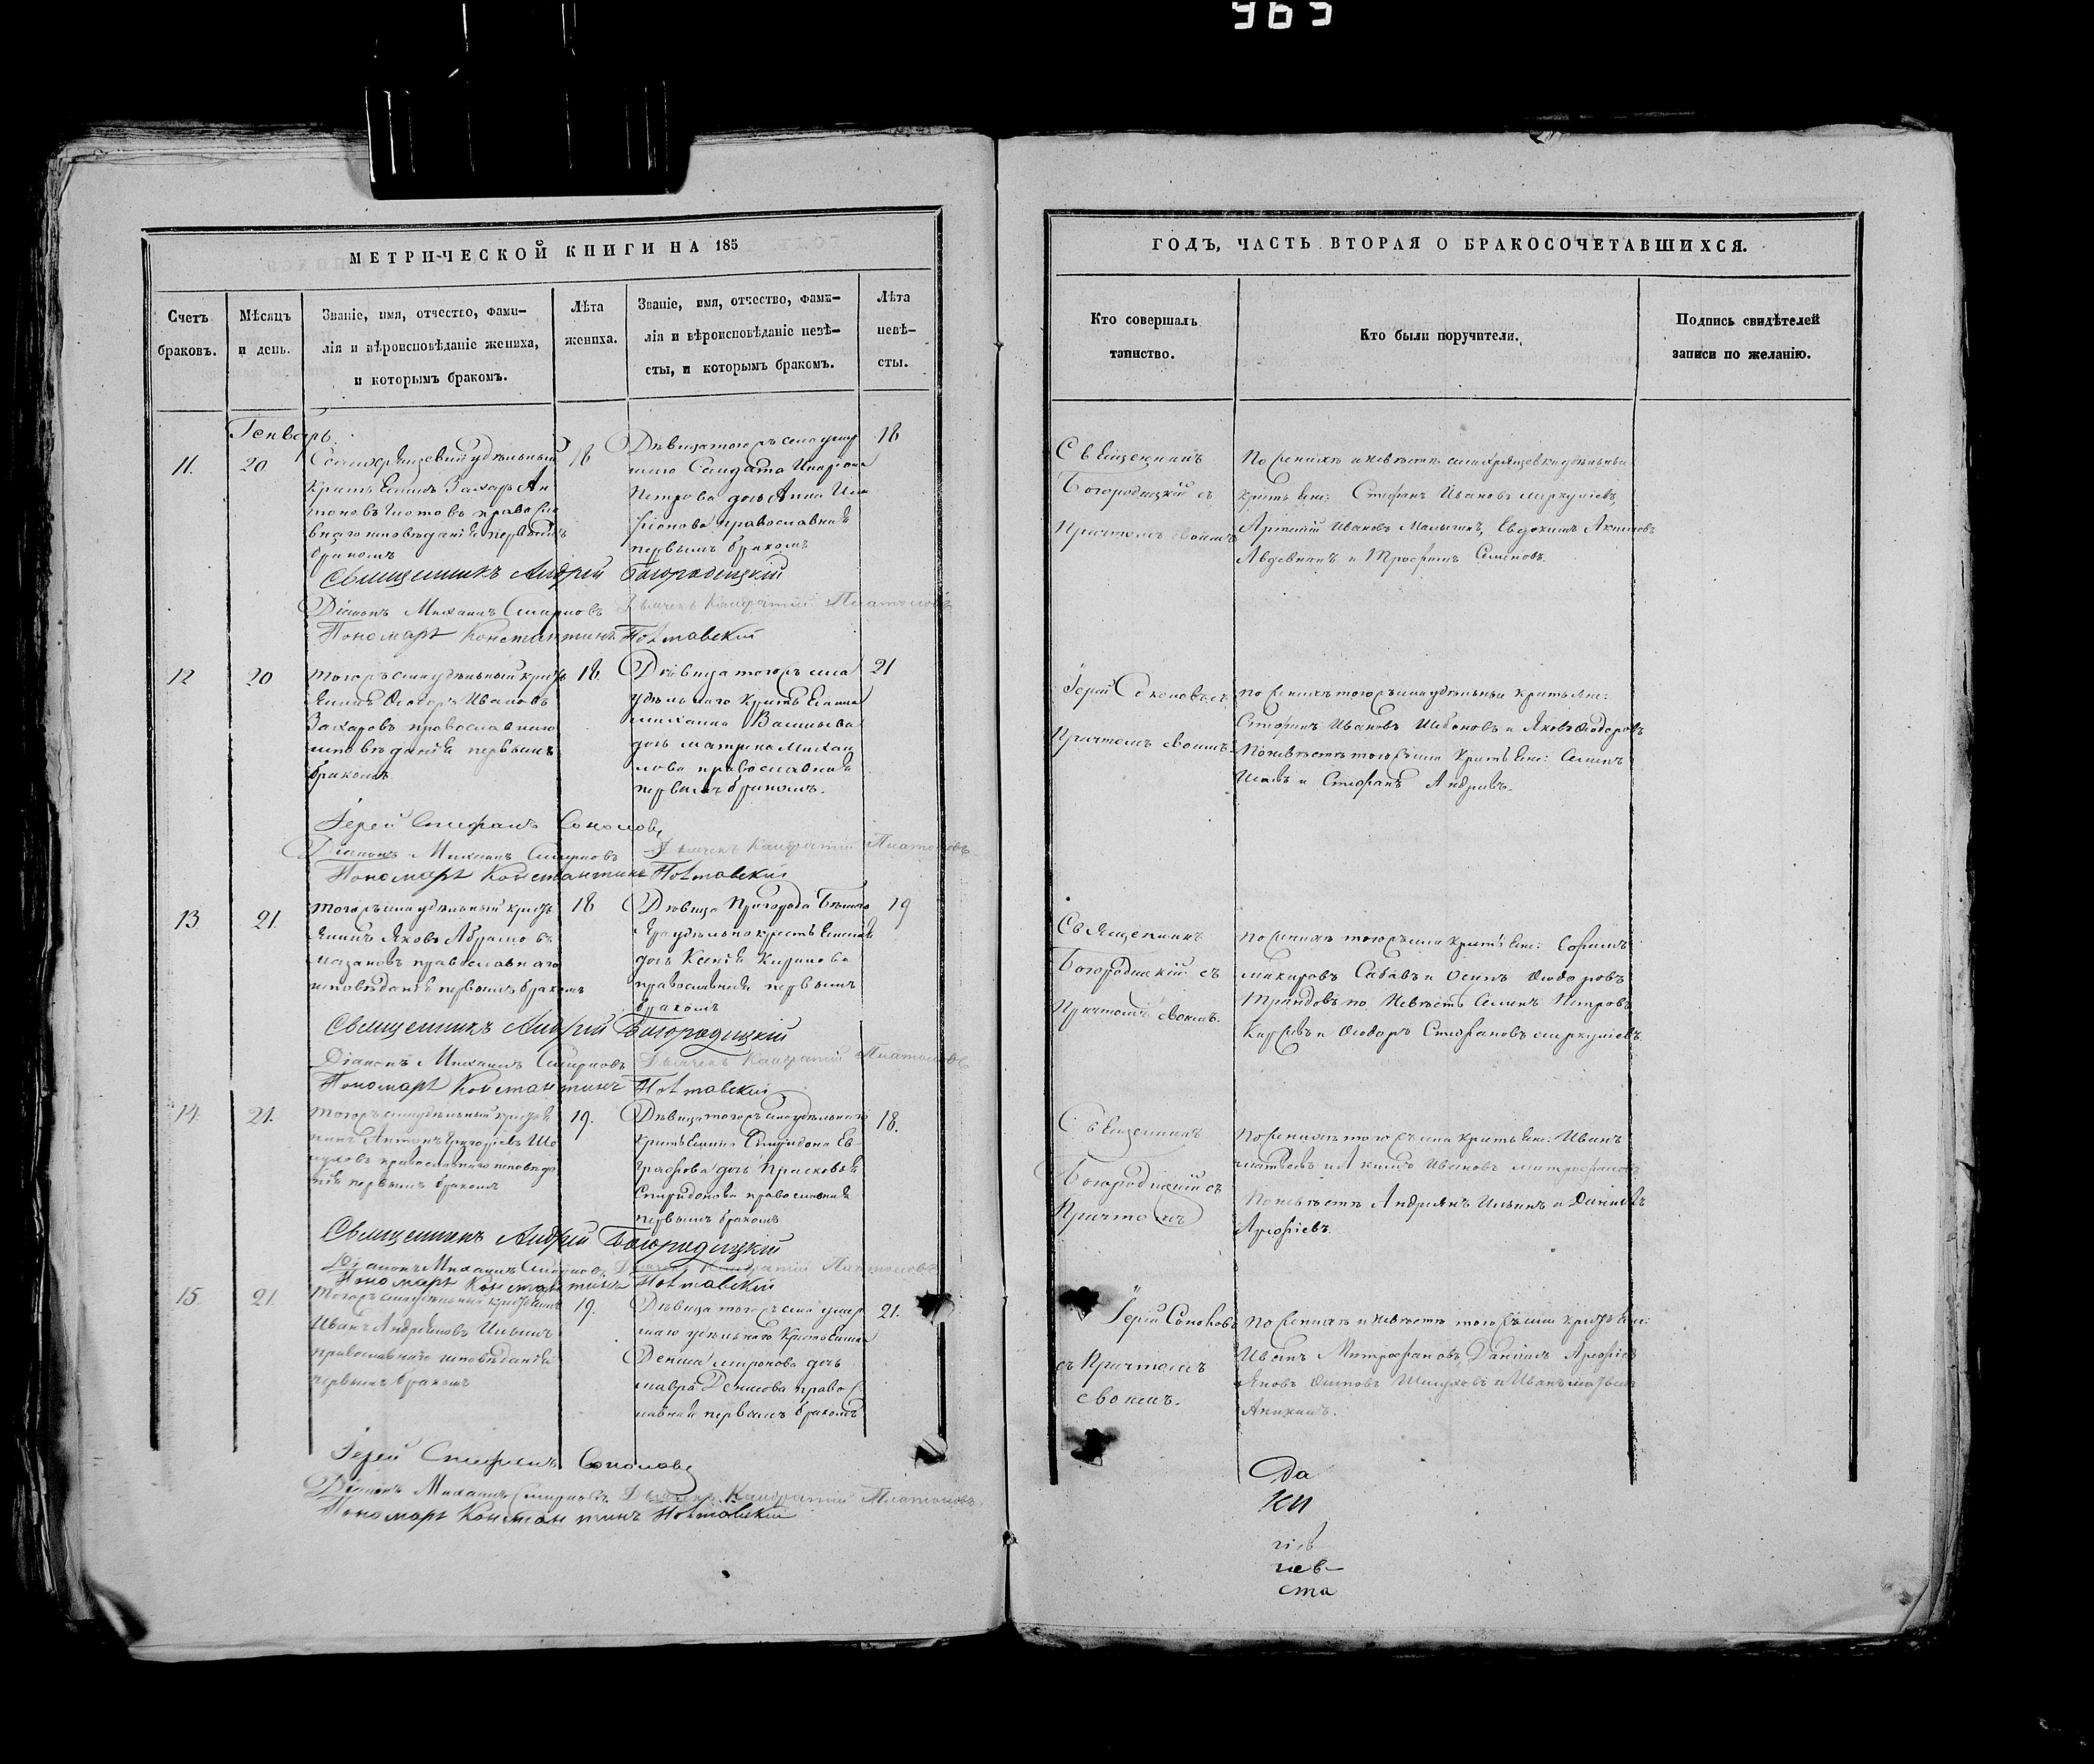 965
МЕТРИЧЕСКОЙ КНИГИ НА 185
Счетъ браковъ.
Мѣсяцъ и день.
Званіе, имя, отчество, фами-
лія и вѣроисповѣданіе жениха,
и которымъ бракомъ.
Лѣта жениха.
Званіе, имя, отчество, фами-
лія и вѣроисповѣданіе невѣ-
сты, и которымъ бракомъ.
Лѣта невѣ-
сты.
Генварь.
11.
20
удѣльный
Захаръ Ан
тоновъ православ
наго исповѣданія первымъ
бракомъ
18
Дѣвица тогожъ села умер
шаго Солдата
Петрова дочь Анна
православная
первымъ бракомъ
18
Священникъ Андрей Богородицкій
Діаконъ Михаилъ Смирновъ Дьячекъ Кандратій Платоновъ
Пономарь Константинъ Полтавскій
12
20
тогожъ села удѣльный кресть
янинъ Ѳеодоръ Ивановъ
Захаровъ православнаго
исповѣданія первымъ
бракомъ
18.
Дѣвица тогожъ села
удѣльнаго крестьянина
Михаила Васильева
дочь Матрена Михаи
лова православная
первымъ бракомъ.
21
Іерей Стефанъ Соколовъ
Діаконъ Михаилъ Смирновъ Дьячекъ Кандратій Платоновъ
Пономарь Константинъ Полтавскій
13.
21.
тогожъ села удѣльный кресть
янинъ Яковъ Абрамовъ
Мазановъ православнаго
исповѣданія первымъ бракомъ
18
Дѣвица Пригорода Бѣлаго
Яра удѣльна крестьянина
дочь Ксенія Кирилова
православная первымъ
бракомъ
19
Священникъ Андрей Богородицкій
Діаконъ Михаилъ Смирновъ Дьячекъ Кандратій Платоновъ
Пономарь Константинъ Полтавскій
14.
21.
тогожъ села удѣльный крестья
нинъ Антонъ Григорьевъ
православнаго исповѣда
нія первымъ бракомъ
19.
Дѣвица тогожъ села удѣльнаго
крестьянина Спиридона Ев
графова дочь Прасковья
Спиридонова православная
первымъ бракомъ
18.
Священникъ Андрей Богородицкій
Діаконъ Михаилъ Смирновъ Дьячекъ Кандратій Платоновъ
Пономарь Константинъ Полтавскій
15.
21.
тогожъ села удѣльный крестьянинъ
Иванъ Андреяновъ Ильинъ
православнаго исповѣданія
первымъ бракомъ
19.
Дѣвица тогожъ села умер
шаго удѣльнаго крестьянина
Дениса Миронова дочь
Мавра Денисова правос
лавная первымъ бракомъ
21.
Іерей Стефанъ Соколовъ
Діаконъ Михаилъ Смирновъ Дьячекъ Кандратій Платоновъ
Пономарь Константинъ Полтавскій
ГОДЪ, ЧАСТЬ ВТОРАЯ О БРАКОСОЧЕТАВШИХСЯ.
Кто совершалъ
таинство.
Кто были поручители.
Подпись свидѣтелей
записи по желанію.
Священникъ
Богородицкій съ
Причтомъ своимъ
По женихѣ и невѣстѣ села удѣльные
крестьяне: Стефанъ Ивановъ Меркуліевъ,
Ивановъ Малыгинъ, Евдокимъ
и Трофимъ Семеновъ.
Іерей Соколовъ съ
Причтомъ своимъ
по женихѣ тогожъ села удѣльные крестьяне:
Стефанъ Ивановъ и Яковъ Ѳеодоровъ
По невѣстѣ тогожъ села крестьяне: Семенъ
и Стефанъ Андреевъ.
Священникъ
Богородицкій съ
Причтомъ своимъ.
По женихѣ тогожъ села крестьяне:
Макаровъ и Осипъ Ѳеодоровъ
по невѣстѣ Семенъ Петровъ
и Ѳеодоръ Стефановъ Меркуліевъ.
Священникъ
Богородицкій съ
Причтомъ
По женихѣ тогожъ села крестьяне: Иванъ
Матвеевъ и Ивановъ Митрофановъ
По невѣстѣ Андреянъ Ильинъ и Даніилъ
Арефіевъ.
Іерей Соколовъ
съ Причтомъ
своимъ.
По женихѣ и невѣстѣ тогожъ села крестьяне:
Иванъ Митрофановъ, Даніилъ Арефіевъ
Яковъ и Иванъ Матвеевъ
Аникинъ.
Да
ки
нев-
ста